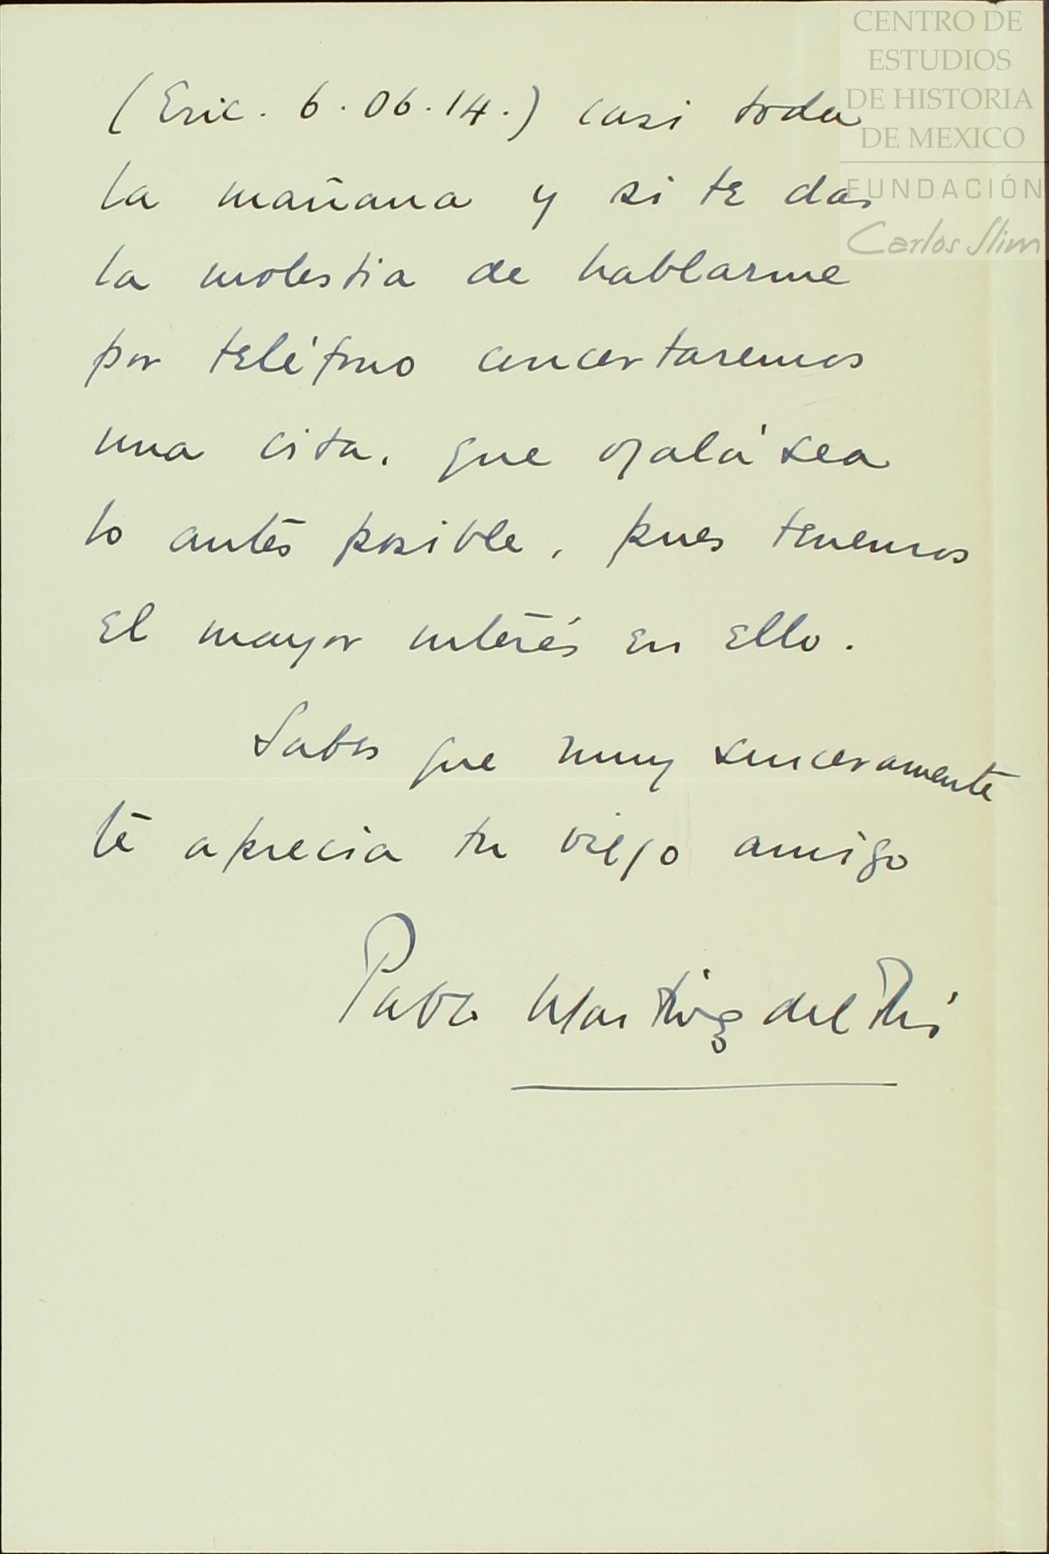 CENTRO DE
ESTUDIOS
DE HISTORIA
DE MEXICO
FUNDACIÓN
Carlos Slim
(Eric. 6.06.14.) casi toda
la mañana y si te das
la molestia de hablarme
por teléfono concertaremos
una cita, que ojalá sea
lo antes posible, pues tenemos
el mayor interés en ello.
Sabes que muy sinceramente
te aprecia tu viejo amigo
Pablo Martínez del Río